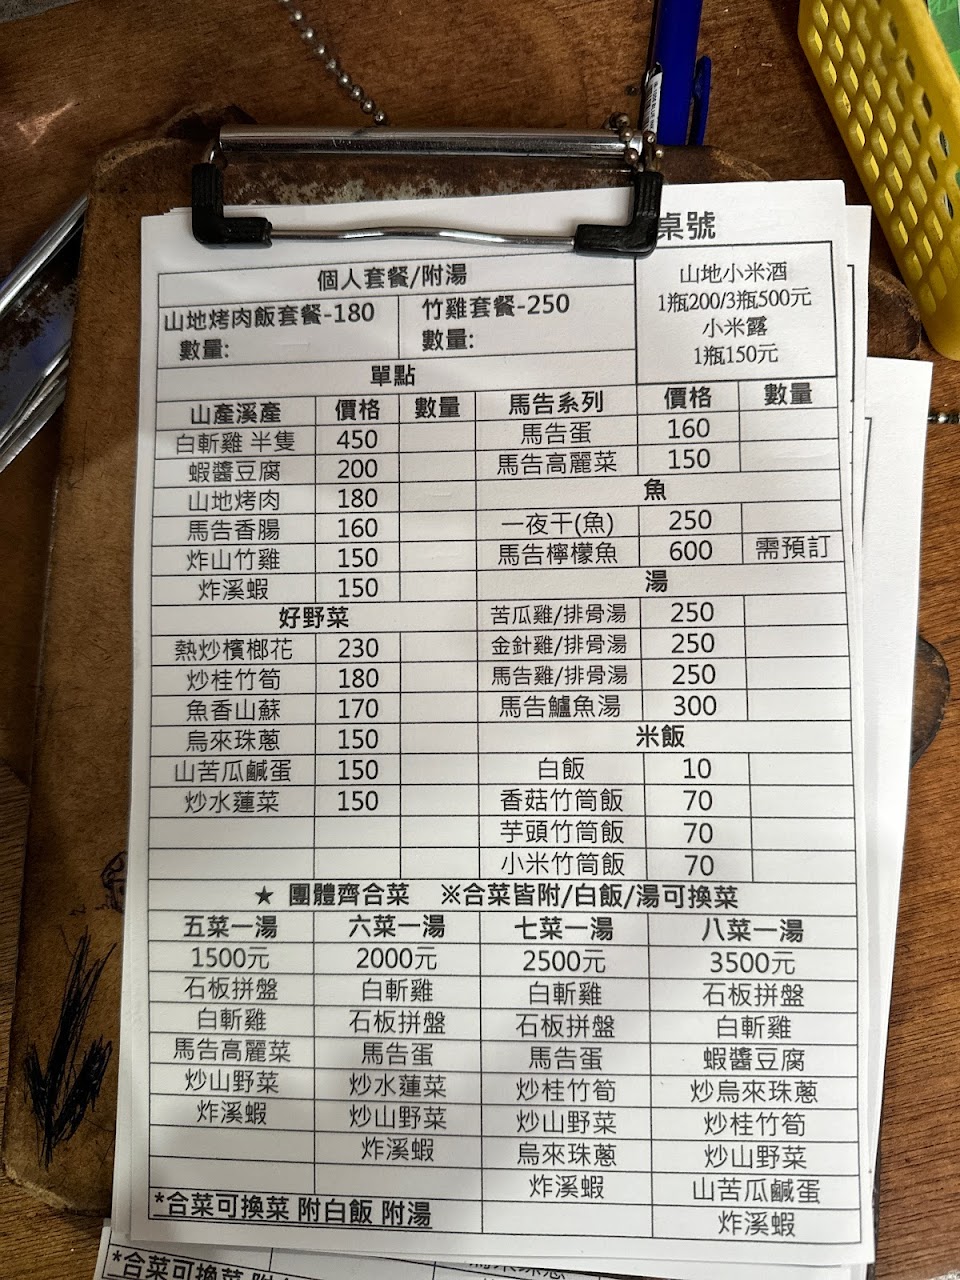 桌號
個人套餐/附湯
山地烤肉飯套餐-180 竹雞套餐-250
數量: 數量:
山地小米酒
1瓶200/3瓶500元
小米露
1瓶150元
單點
山產溪產 價格 數量 馬告系列 價格 數量
白斬雞 半隻 450 馬告蛋 160
蝦醬豆腐 200 馬告高麗菜 150
山地烤肉 180 魚
馬告香腸 160 一夜干(魚) 250
炸山竹雞 150 馬告檸檬魚 600 需預訂
炸溪蝦 150 湯
好野菜 苦瓜雞/排骨湯 250
熱炒檳榔花 230 金針雞/排骨湯 250
炒桂竹筍 180 馬告雞/排骨湯 250
魚香山蘇 170 馬告鱸魚湯 300
烏來珠蔥 150 米飯
山苦瓜鹹蛋 150 白飯 10
炒水蓮菜 150 香菇竹筒飯 70
芋頭竹筒飯 70
小米竹筒飯 70
★ 團體齊合菜 ※合菜皆附/白飯/湯可換菜
五菜一湯 六菜一湯 七菜一湯 八菜一湯
1500元 2000元 2500元 3500元
石板拼盤 白斬雞 白斬雞 石板拼盤
白斬雞 石板拼盤 石板拼盤 白斬雞
馬告高麗菜 馬告蛋 馬告蛋 蝦醬豆腐
炒山野菜 炒水蓮菜 炒桂竹筍 炒烏來珠蔥
炸溪蝦 炒山野菜 炒山野菜 炒桂竹筍
炸溪蝦 烏來珠蔥 炒山野菜
炸溪蝦 山苦瓜鹹蛋
*合菜可換菜 附白飯 附湯 炸溪蝦
*合菜可換菜